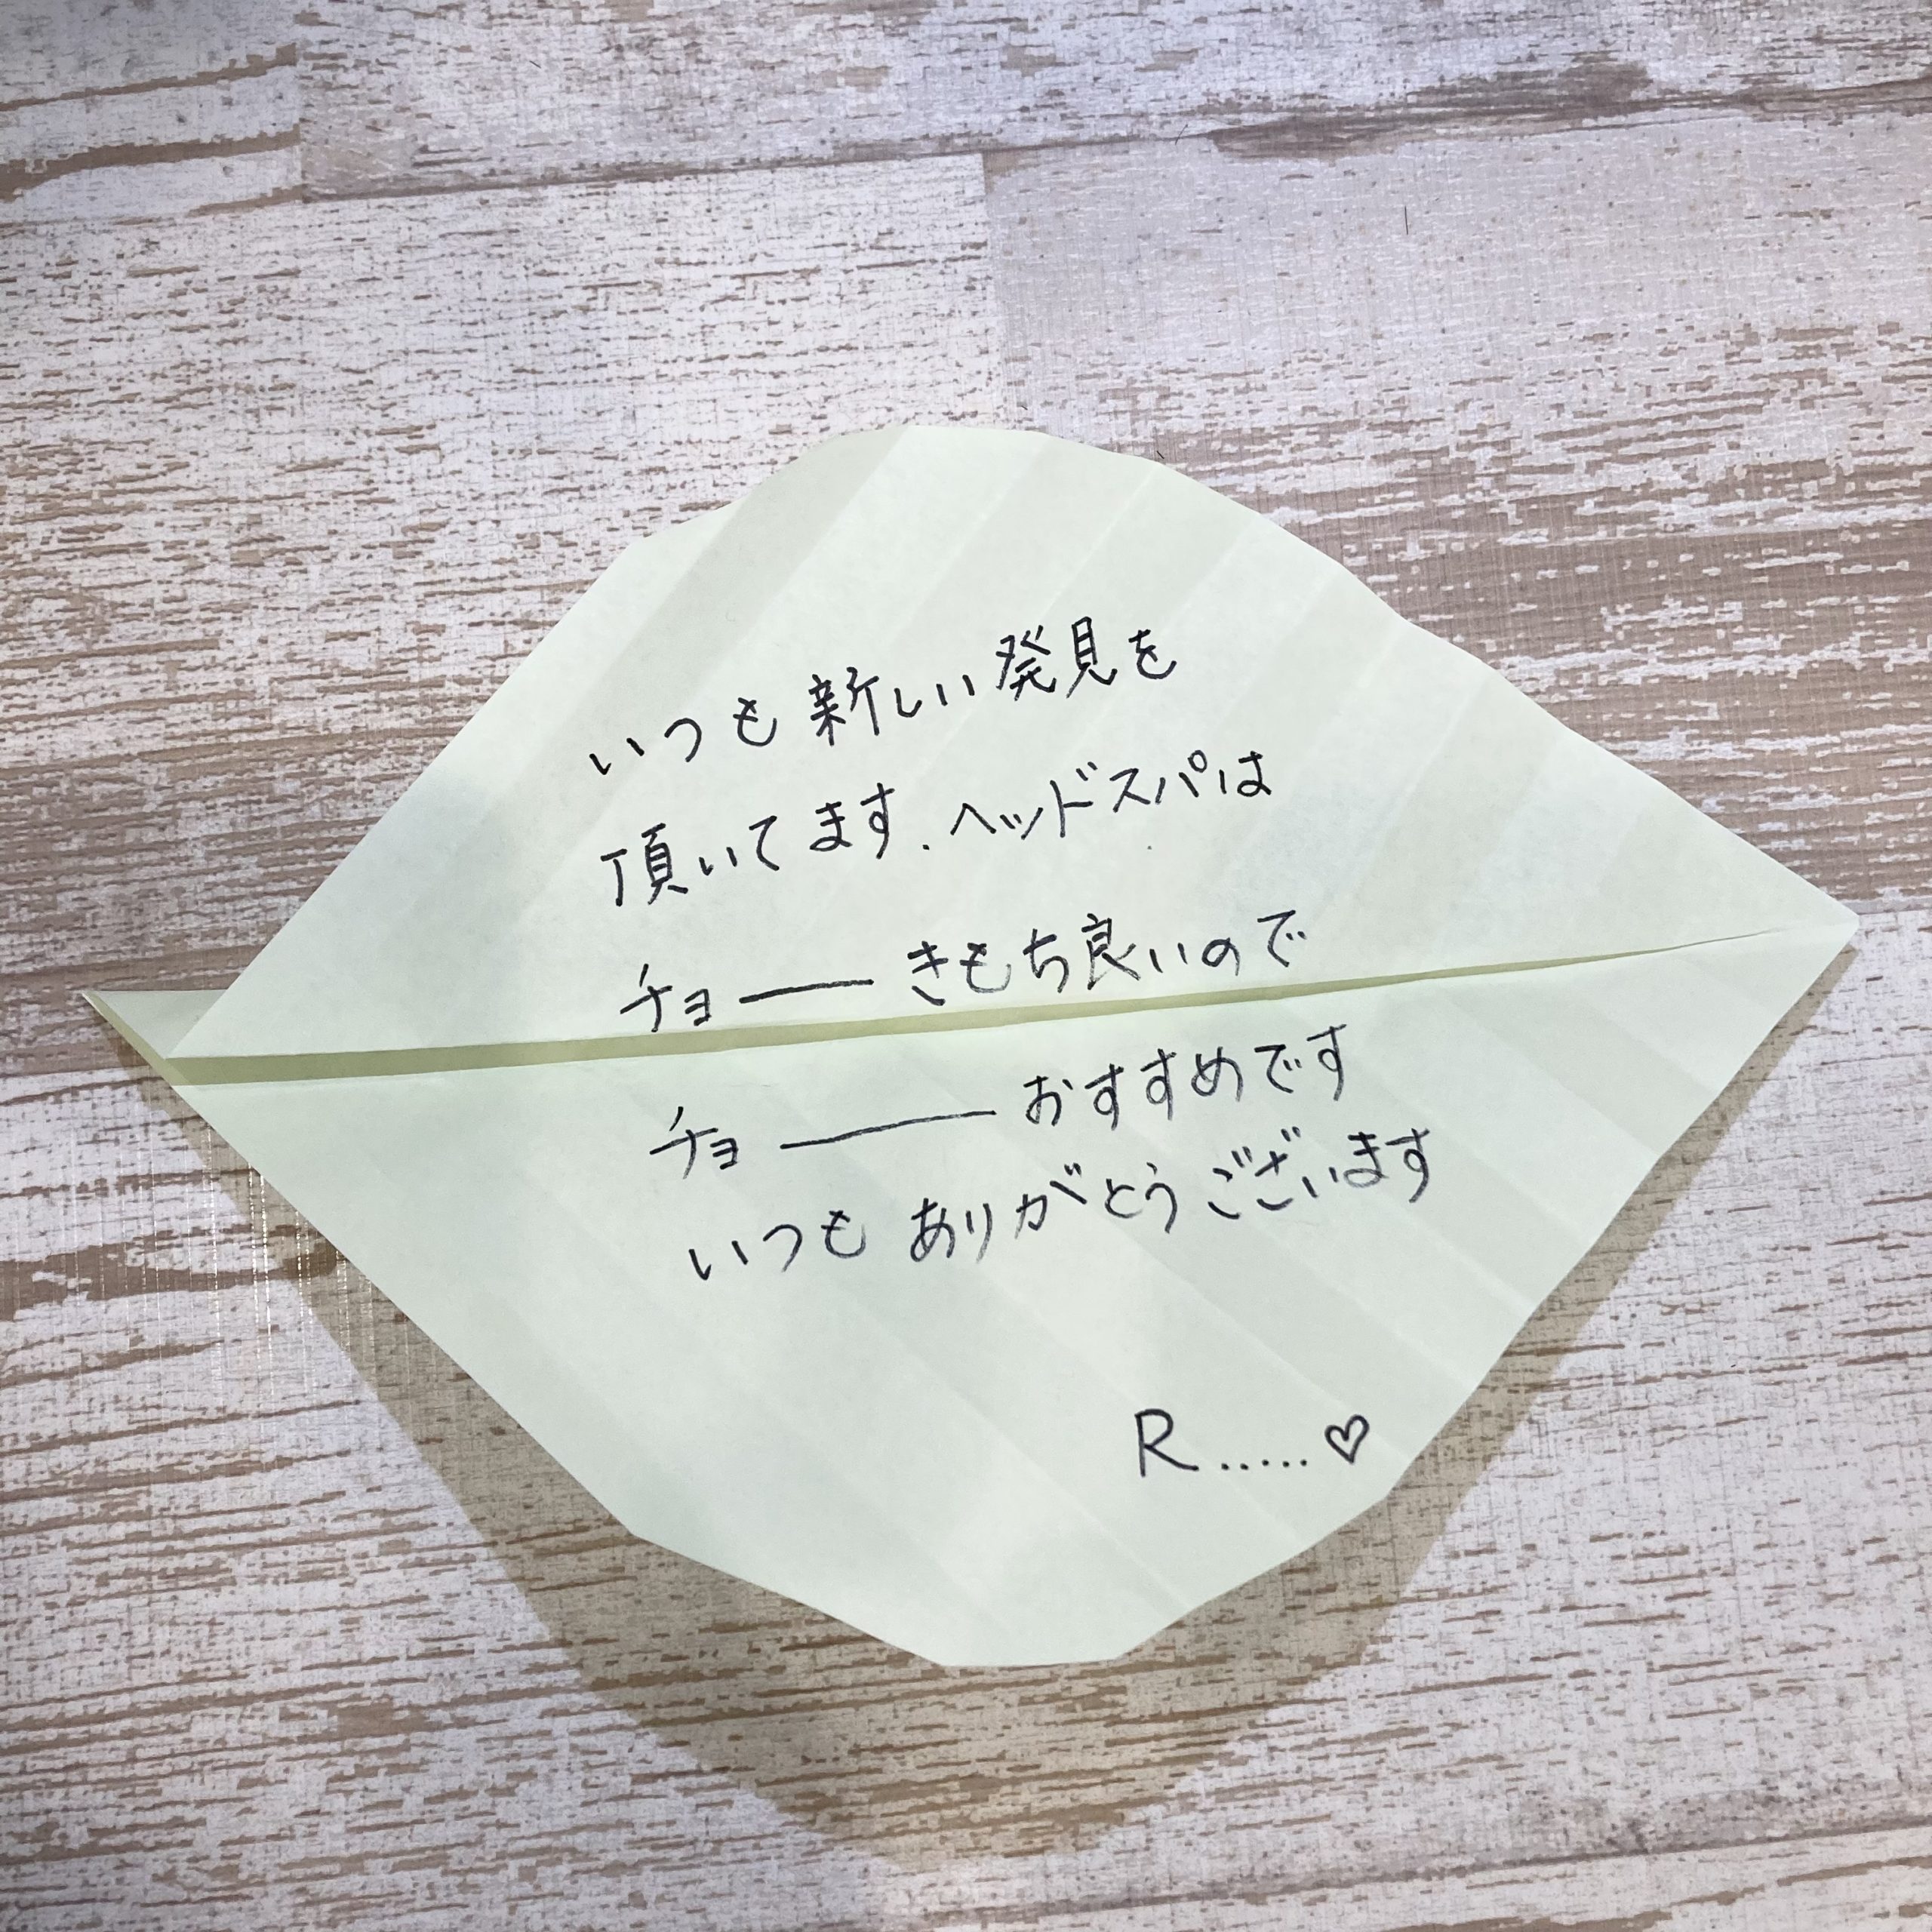 いつも新しい発見を
頂いてます.ヘッドスパは
チョーーきもち良いので
チョーーーおすすめです
いつもありがとうございます
R.....♡